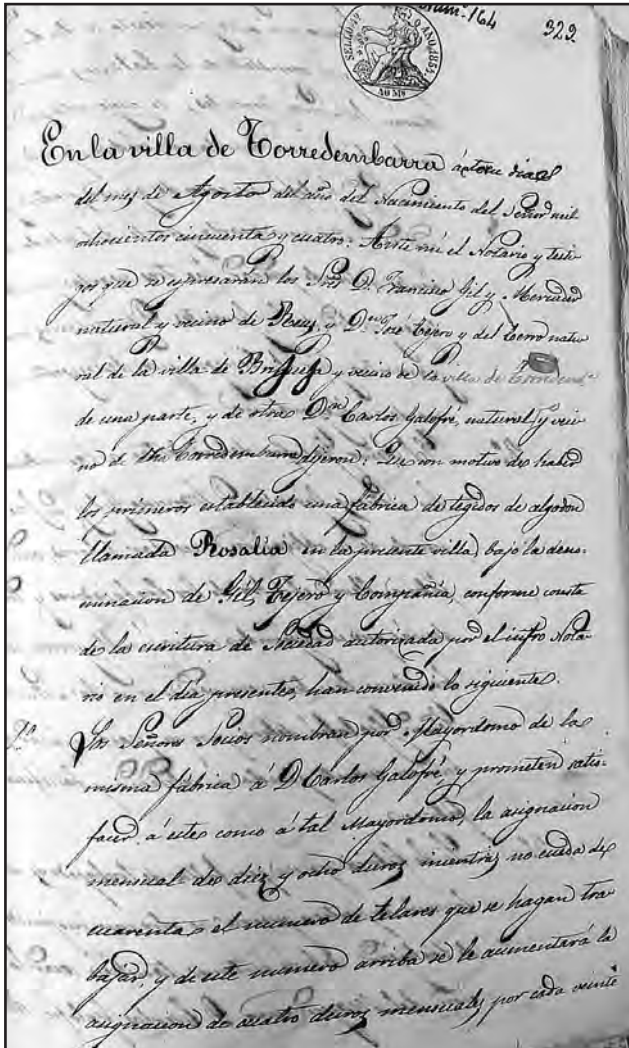 Num. 164
322
SELLO 4º AÑO 1854
40 MS
En la villa de Torredembarra á catorce dias
del mes de Agosto del año del Nacimiento del Señor mil
ochocientos cincuenta y cuatro. Ante mí el Notario y testi-
gos que se espresarán los Sres D. Francisco Gil y Mercader
natural y vecino de Reus, y Dn. José Tejero y del Cerro natu
ral de la villa de Brihuega y vecino de la villa de
de una parte, y de otra Dn. Carlos Galofré, natural y veci-
no de dha Torredembarra dijeron: Que con motivo de haber
los primeros establecido una fábrica de tegidos de algodon
llamada Rosalía en la presente villa, bajo la deno-
minacion de Gil, Tejero y Compañía, conforme consta
de la escritura de Sociedad autorizada por el infro Nota-
rio en el dia presente, han convenido lo siguiente.
1º Los Señores Socios nombran por Mayordomo de la
misma fábrica á D. Carlos Galofré, y prometen satis-
facer á este como á tal Mayordomo, la asignacion
mensual de diez y ocho duros mientras no eceda de
cuarenta el numero de telares que se hagan tra
bajar, y de este numero arriba se le aumentará la
asignacion de cuatro duros mensuales por cada veinte